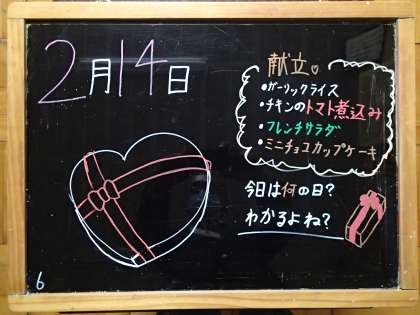 2月14日
献立
•ガーリックライス
•チキンのトマト煮込み
•フレンチサラダ
•ミニチョコカップケーキ
今日は何の日?
わかるよね?
6